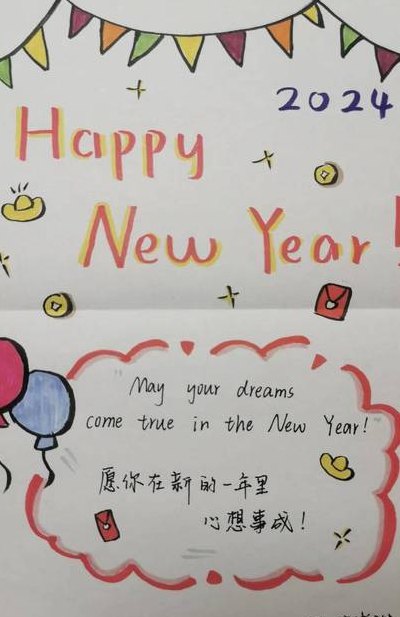 2024
Happy
New Year!
May your dreams
come true in the New Year!
愿你在新的一年里
心想事成!